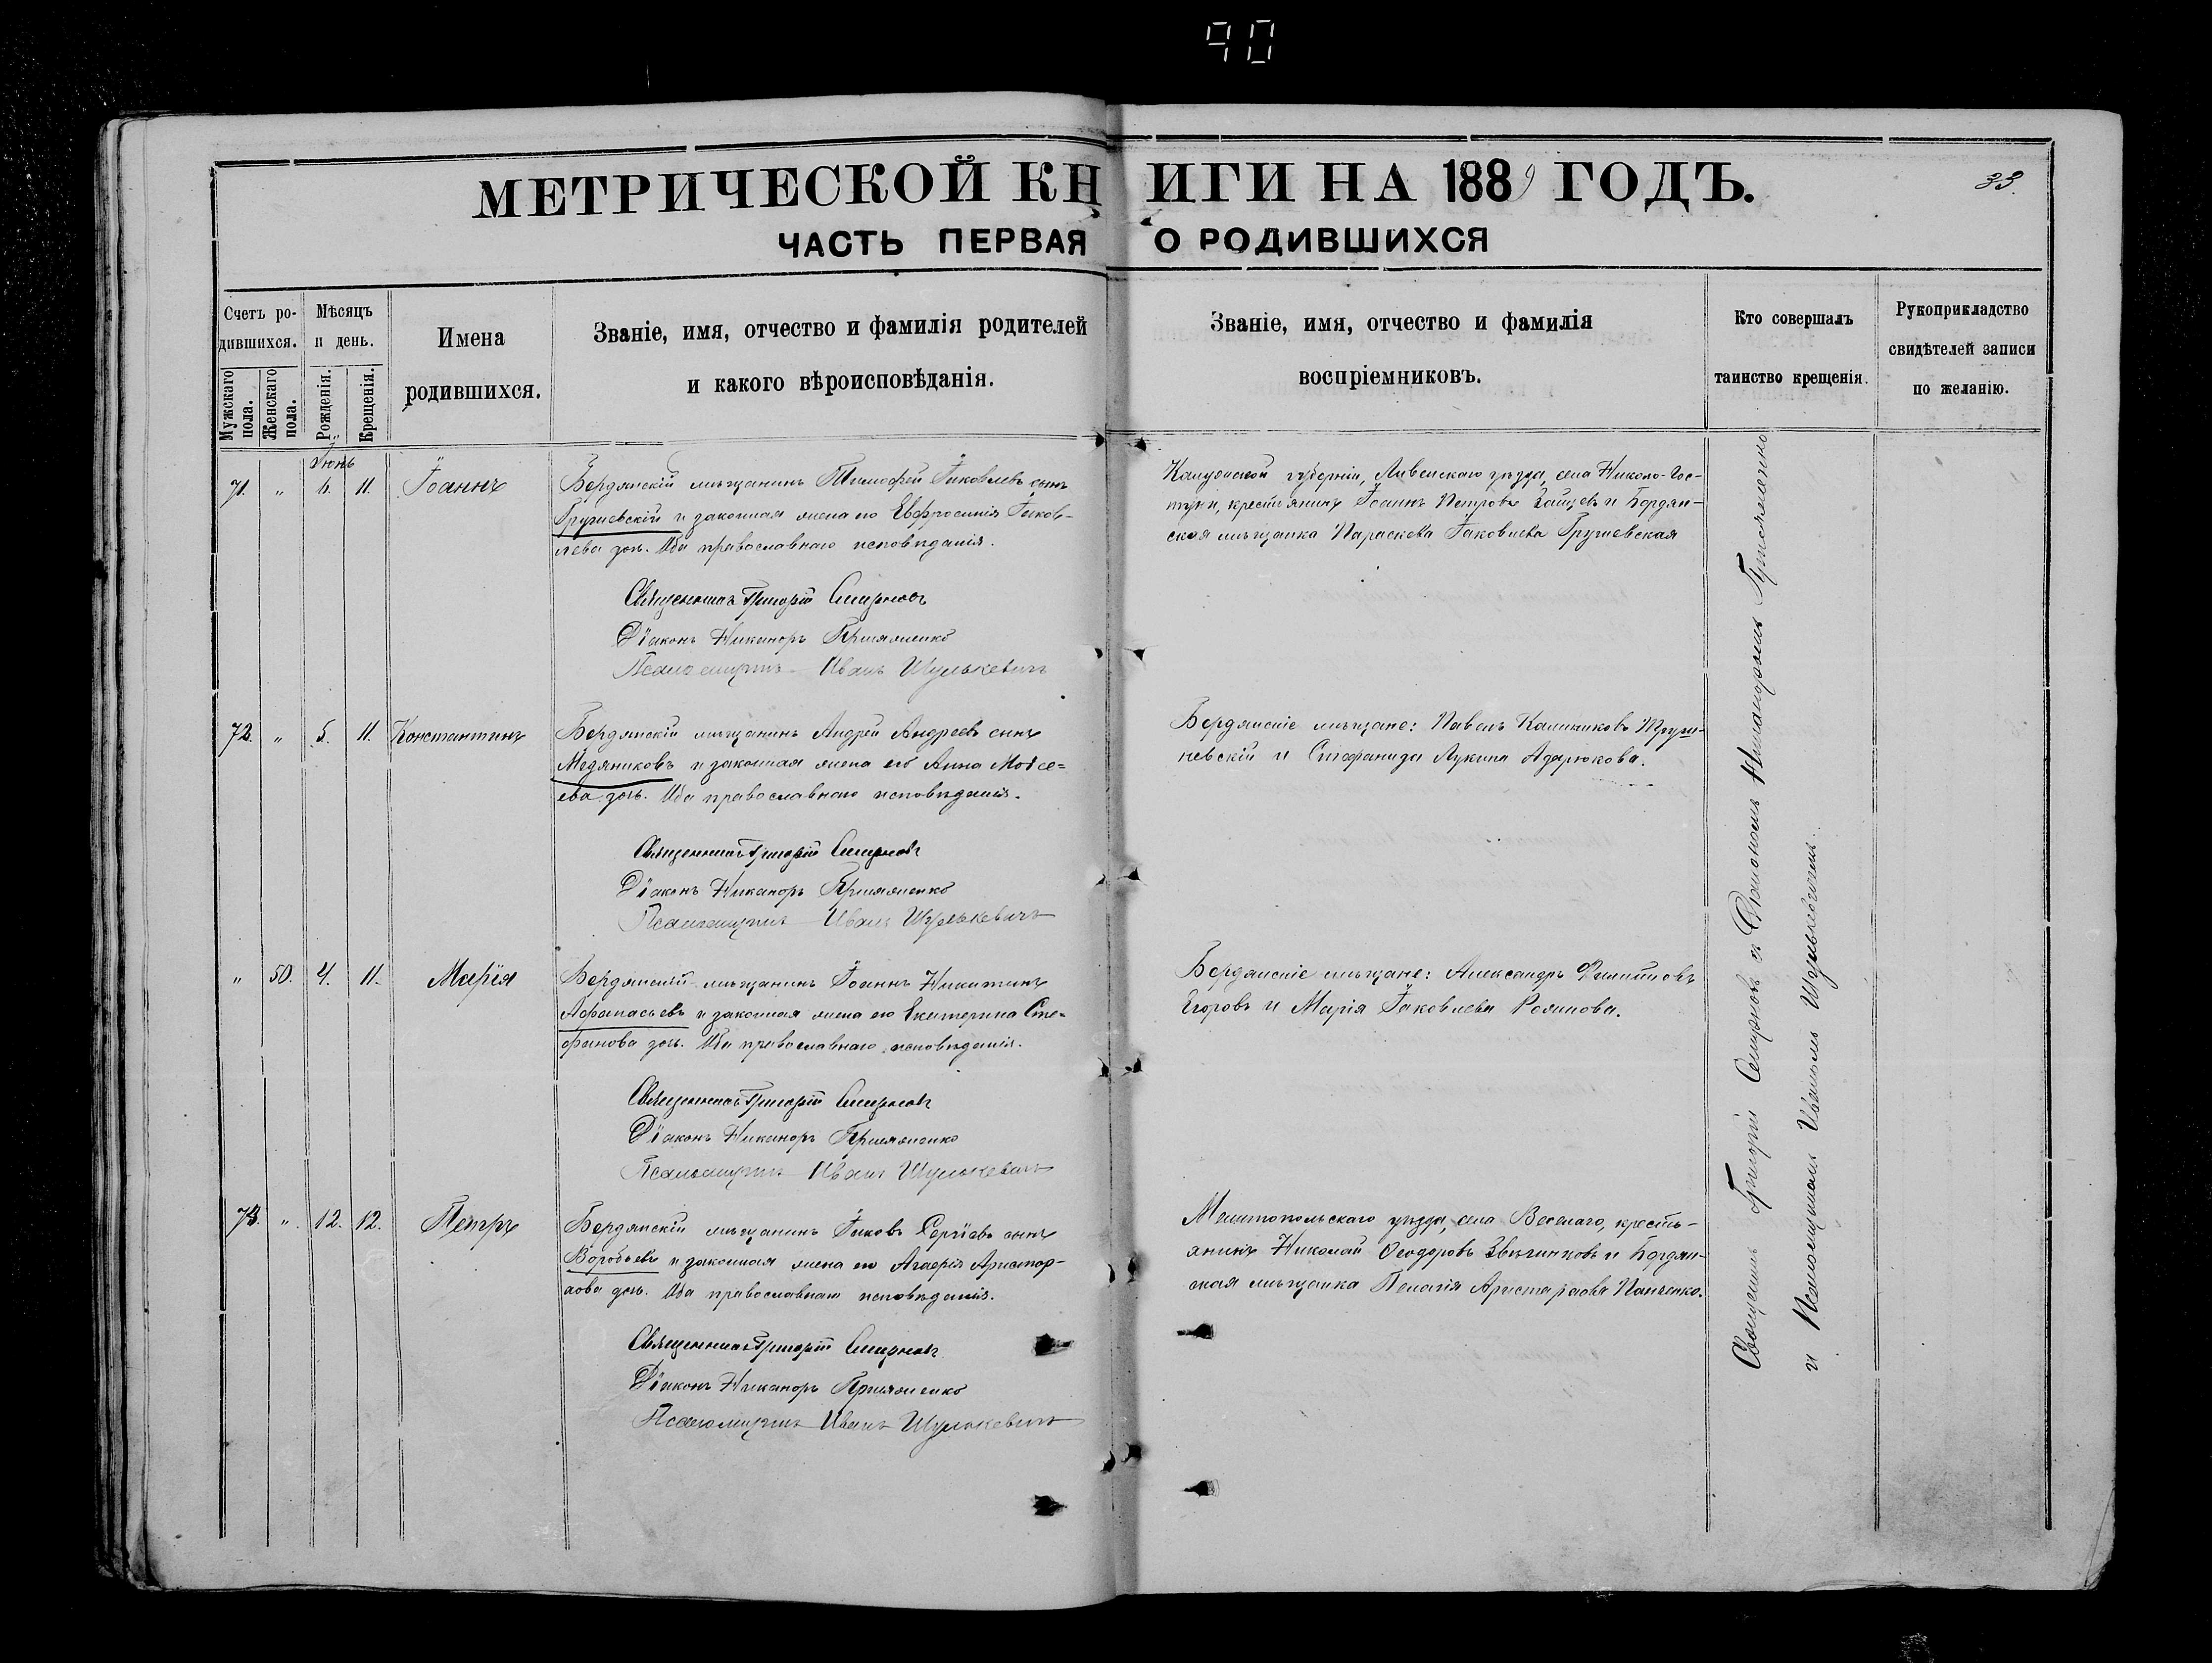 90
МЕТРИЧЕСКОЙ КНИГИ НА 1889 ГОДЪ.
33.
ЧАСТЬ ПЕРВАЯ О РОДИВШИХСЯ
Счетъ ро-
дившихся.
Мужскаго пола.
Женскаго пола.
Мѣсяцъ
и день.
Рожденія.
Крещенія.
Имена
родившихся.
Званіе, имя, отчество и фамилія родителей
и какого вѣроисповѣданія.
Званіе, имя, отчество и фамилія
воспріемниковъ.
Кто совершалъ
таинство крещенія.
Рукоприкладство
свидѣтелей записи
по желанію.
Іюнь
71. " 6. 11. Іоаннъ
Бердянскій мѣщанинъ Тимофей Іаковлевъ сынъ
и законная жена его Евфросинія Іаков-
лева дочь. Оба православнаго исповѣданія.
Священникъ Григорій Смирновъ
Діаконъ Никаноръ
Псаломщикъ Иванъ Шулькевичъ
губерніи, уѣзда, села Николо-Гос-
крестьянинъ Іоаннъ Петровъ Зайцевъ и Бердян-
ская мѣщанка Параскева Іаковлева
72. " 5. 11. Константинъ
Бердянскій мѣщанинъ Андрей Андреевъ сынъ
Медяниковъ и законная жена его Анна Моѵсе-
ева дочь. Оба православнаго исповѣданія.
Священникъ Григорій Смирновъ
Діаконъ Никаноръ
Псаломщикъ Иванъ Шулькевичъ
Бердянскіе мѣщане: Павелъ
и Стефанида Лукина Адарюкова.
" 50. 4. 11. Марія
Бердянскій мѣщанинъ Іоаннъ Никитинъ
Афанасьевъ и законная жена его Екатерина Сте-
фанова дочь. Оба православнаго исповѣданія.
Священникъ Григорій Смирновъ
Діаконъ Никаноръ
Псаломщикъ Иванъ Шулькевичъ
Бердянскіе мѣщане: Александръ Филипповъ
Егоровъ и Марія Іаковлева
73. " 12. 12. Петръ
Бердянскій мѣщанинъ Іаковъ Сергіевъ сынъ
Воробьевъ и законная жена его Агафія Аристар-
хова дочь. Оба православнаго исповѣданія.
Священникъ Григорій Смирновъ
Діаконъ Никаноръ
Псаломщикъ Иванъ Шулькевичъ
Мелитопольскаго уѣзда, села Веселаго, кресть-
янинъ Николай Ѳеодоровъ и Бердян-
ская мѣщанка Пелагія Аристархова Панченко.
Григорій Смирновъ съ Діакономъ Никаноромъ
и Псаломщикомъ Иваномъ Шулькевичемъ.